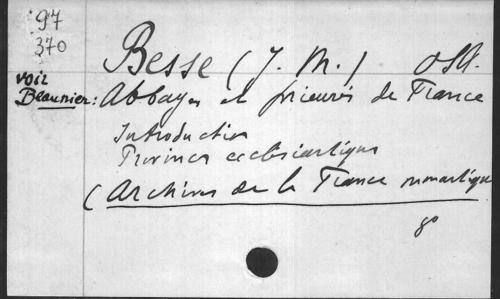 97
370
Besse (J. M.) OSB.
voir
Beaunier: Abbayes et prieurés de France
Introduction
Provinces ecclésiastiques
(Archives de la France monastique
8°